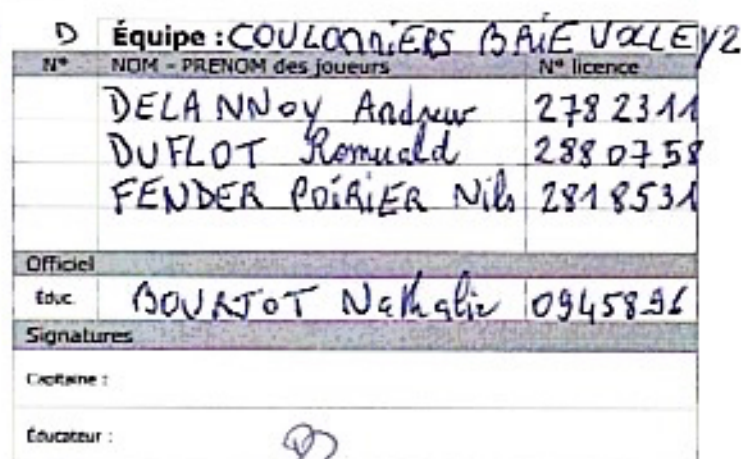 D Équipe : COULOMMIERS BRIE VOLLEY 2
N° NOM - PRENOM des joueurs N° licence
DELANNOY Andrew 2782311
DUFLOT Romuald 2880758
FENDER POIRIER Nils 2818531
Officiel
Éduc. BOURJOT Nathalie 0945896
Signatures
Capitaine :
Éducateur :